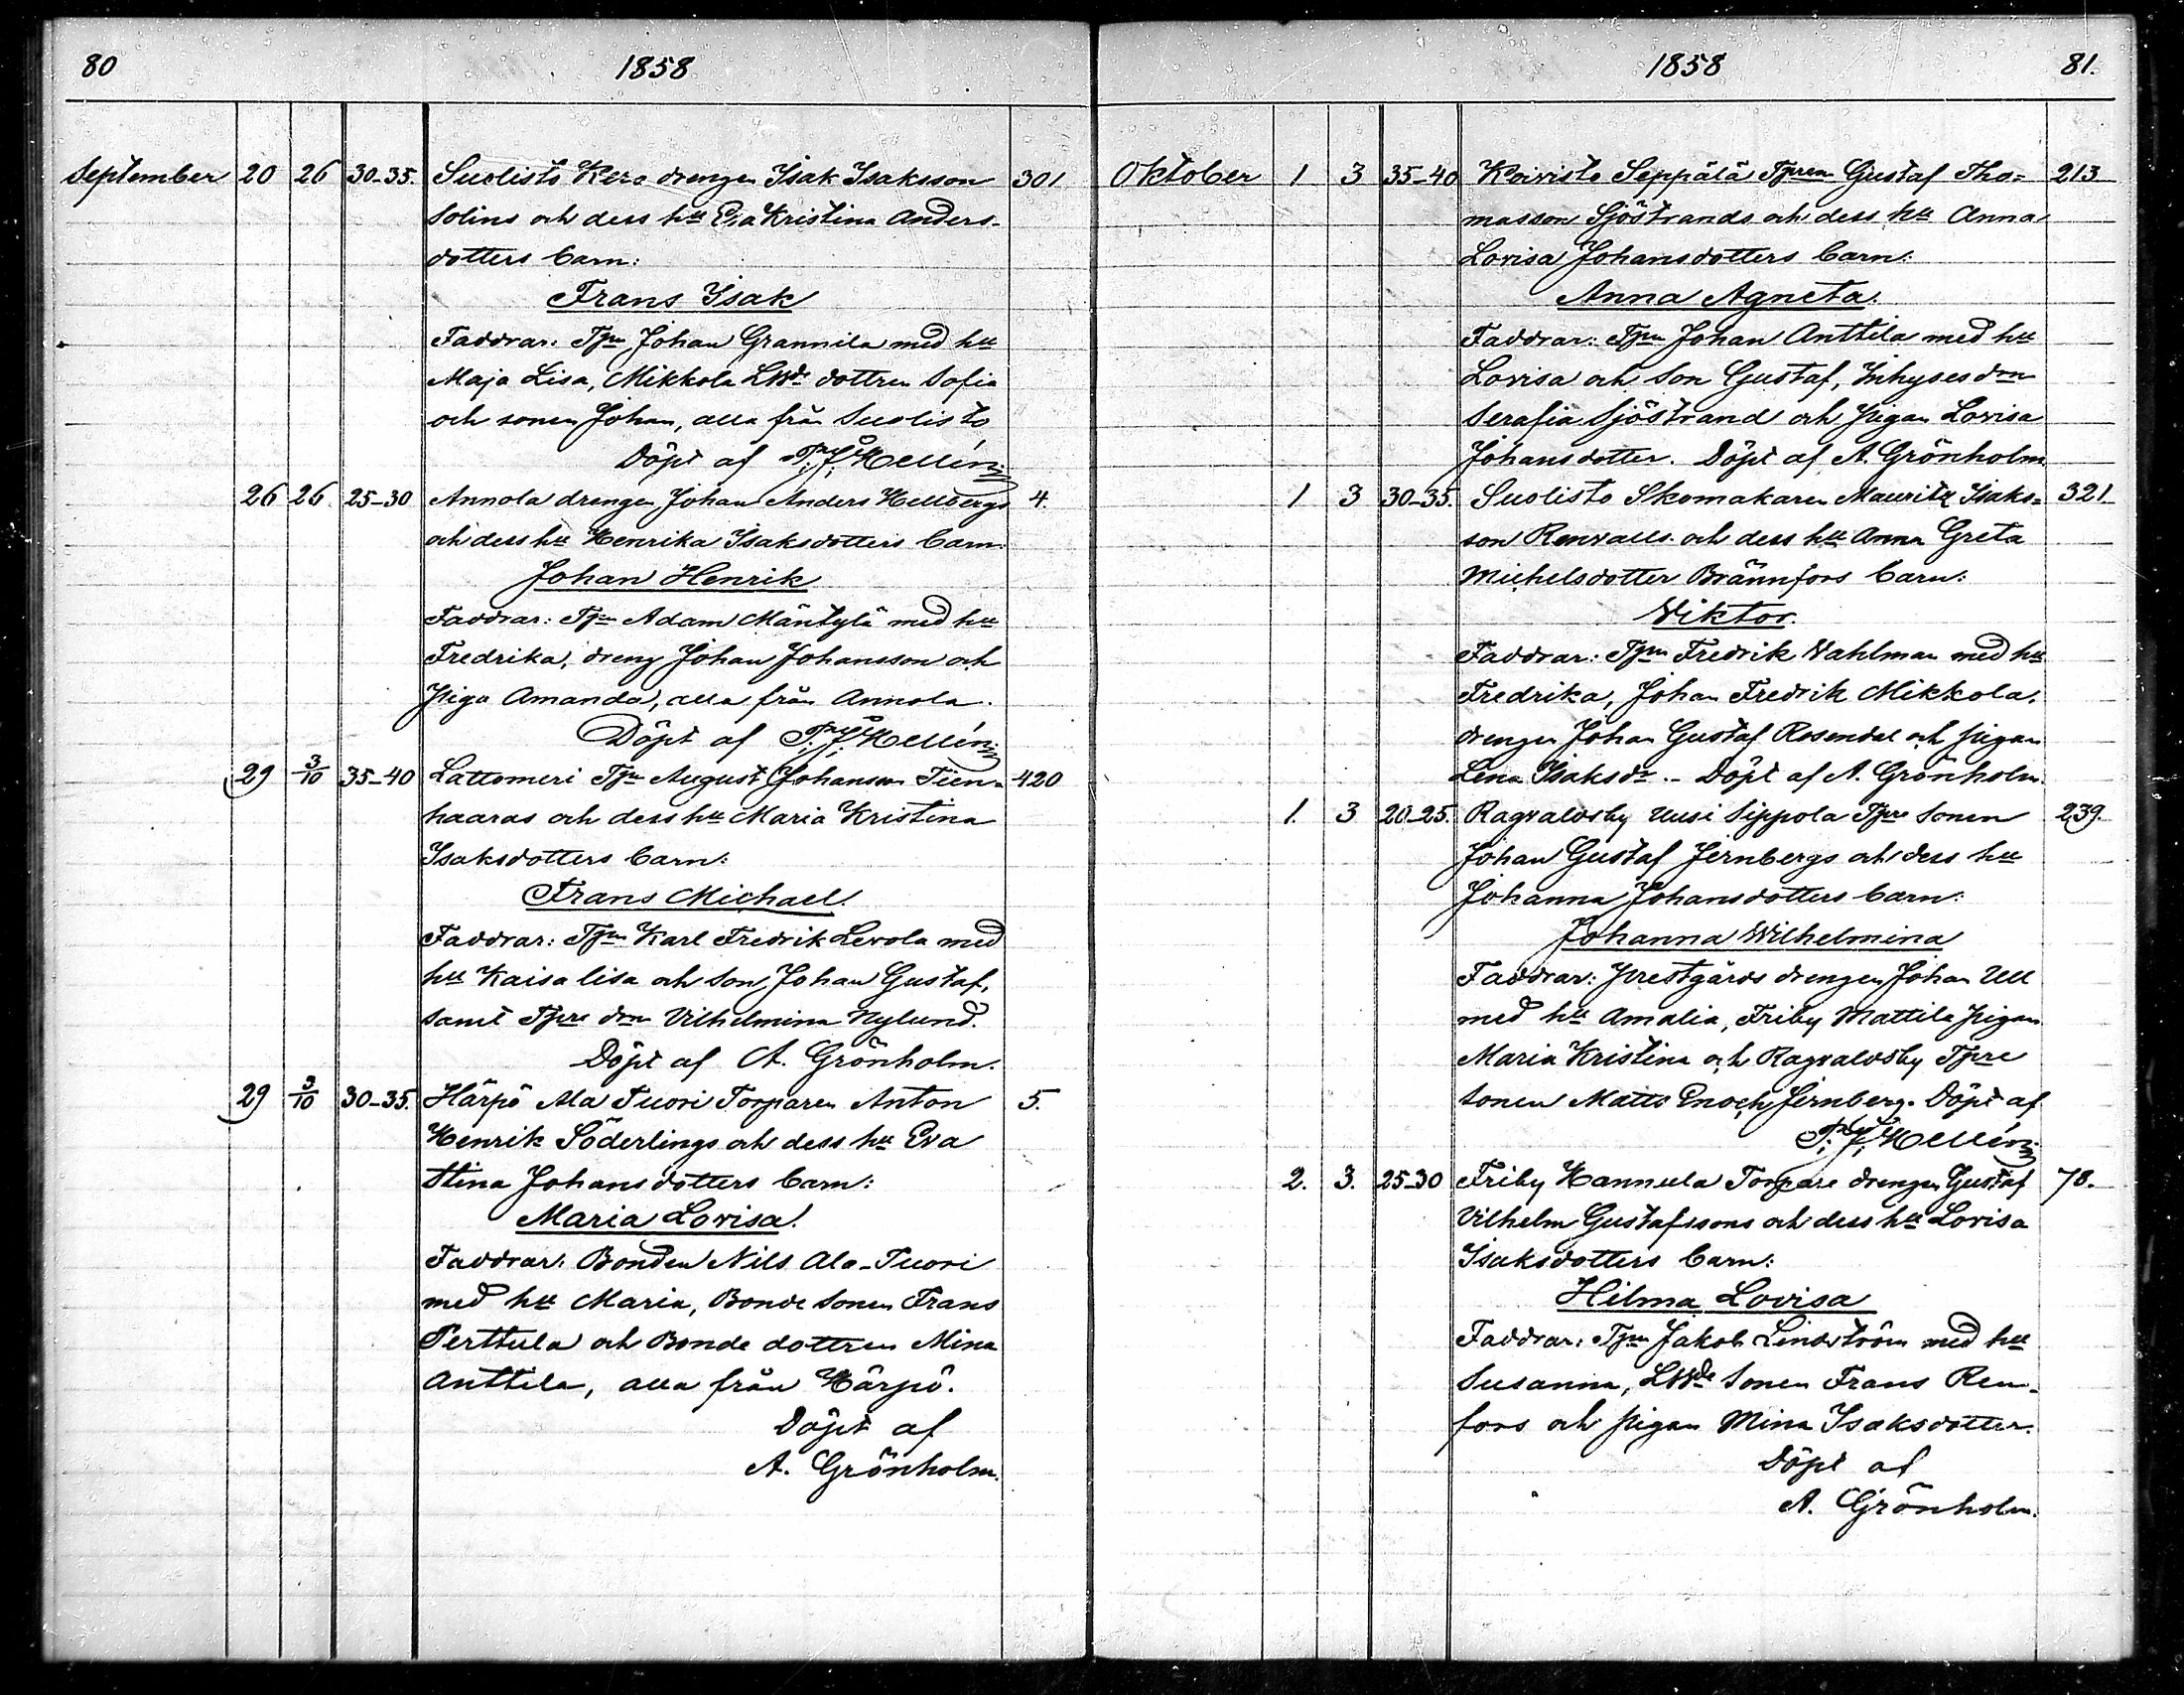 80 1858
September 20 26 30-35. Suolisto Kero drengen Isak Isaksson 301
Solins och dess hu Eva Kristina Anders-
dotters barn:
Frans Isak
Faddrar: Tpn Johan Grannila med hu
Maja Lisa, Mikkola Lbde dottren Sofia
och sonen Johan, alla från Suolisto
Döpt af Hellén
26 26 25-30 Annola drengen Johan Anders Hellbergs 4.
och dess hu Henrika Isaksdotters barn:
Johan Henrik
Faddrar: Tpn Adam Mäntylä med hu
Fredrika, dreng Johan Johansson och
piga Amanda, alla från Annola.
Döpt af Hellén
29 3/10 35-40 Lattomeri Tpn August Johansson Tien- 420
haaras och dess hu Maria Kristina
Isaksdotters barn:
Frans Michael.
Faddrar: Tpn Karl Fredrik Levola med
hu Kaisa lisa och son Johan Gustaf,
samt Tpre drn Vilhelmina Nylund.
Döpt af A. Grönholm.
29 3/10 30-35. Härpö Ala Tuori Torparen Anton 5.
Henrik Söderlings och dess hu Eva
Stina Johansdotters barn:
Maria Lovisa.
Faddrar: Bonden Nils Ala-Tuori
med hu Maria, Bonde sonen Frans
Perttula och Bonde dottren Mina
Anttila, alla från Härpö.
Döpt af
A. Grönholm.
1858 81.
Oktober 1 3 35-40 Koivisto Seppälä Tpren Gustaf Tho= 213
masson Sjöstrands och dess hu Anna
Lovisa Johansdotters barn:
Anna Agneta.
Faddrar: Tpn Johan Anttila med hu
Lovisa och son Gustaf, Inhyses drn
Serafia Sjöstrand och pigan Lovisa
Johansdotter. Döpt af A. Grönholm
1 3 30-35. Suolisto Skomakaren Mauritz Isaks= 321
son Renvalls och dess hu Anna Greta
Michelsdotter Brännfors barn:
Viktor.
Faddrar: Tpn Fredrik Vahlman med hu
Fredrika, Johan Fredrik Mikkola,
drengen Johan Gustaf Rosendal och pigan
Lena Isaksdr. - Döpt af A. Grönholm.
1. 3 20-25. Ragvaldsby Uusi Sippola Tpre sonen 239.
Johan Gustaf Jernbergs och dess hu
Johanna Johansdotters barn:
Johanna Wilhelmina
Faddrar: Prestgårds drengen Johan Ull
med hu Amalia, Friby Mattila pigan
Maria Kristina och Ragvaldsby Tpre
sonen Matts Enoch Jernberg. Döpt af
Hellén
2. 3. 25-30 Friby Hannula Torpare drengen Gustaf 78.
Vilhelm Gustafssons och dess hu Lovisa
Isaksdotters barn:
Hilma Lovisa
Faddrar: Tpn Jakob Lindström med hu
Susanna, Lbde sonen Frans Ren-
fors och pigan Mina Isaksdotter.
Döpt af
A. Grönholm.